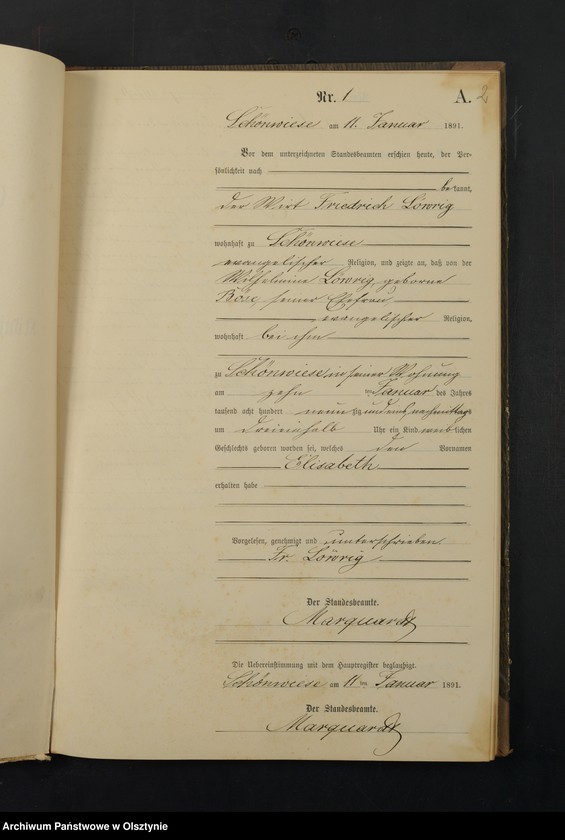 Nr. 1
A. 2
Schönwiese am 11. Januar 1891.
Vor dem unterzeichneten Standesbeamten erschien heute, der Per-
sönlichkeit nach
be kannt,
der Wirt Friedrich Löwrig
wohnhaft zu Schönwiese
evangelischer Religion, und zeigte an, daß von der
Wilhelmine Löwrig, geborne
Böse, seiner Ehefrau,
evangelischer Religion,
wohnhaft bei ihm
zu Schönwiese, in seiner Wohnung
am zehn ten Januar des Jahres
tausend acht hundert neun zig und eins, nachmittags
um dreieinhalb Uhr ein Kind weib lichen
Geschlechts geboren worden sei, welches den Vornamen
Elisabeth
erhalten habe
Vorgelesen, genehmigt und unterschrieben.
Fr. Löwrig
Der Standesbeamte.
Marquardt
Die Uebereinstimmung mit dem Hauptregister beglaubigt.
Schönwiese am 11 ten Januar 1891.
Der Standesbeamte.
Marquardt
Archiwum Państwowe w Olsztynie